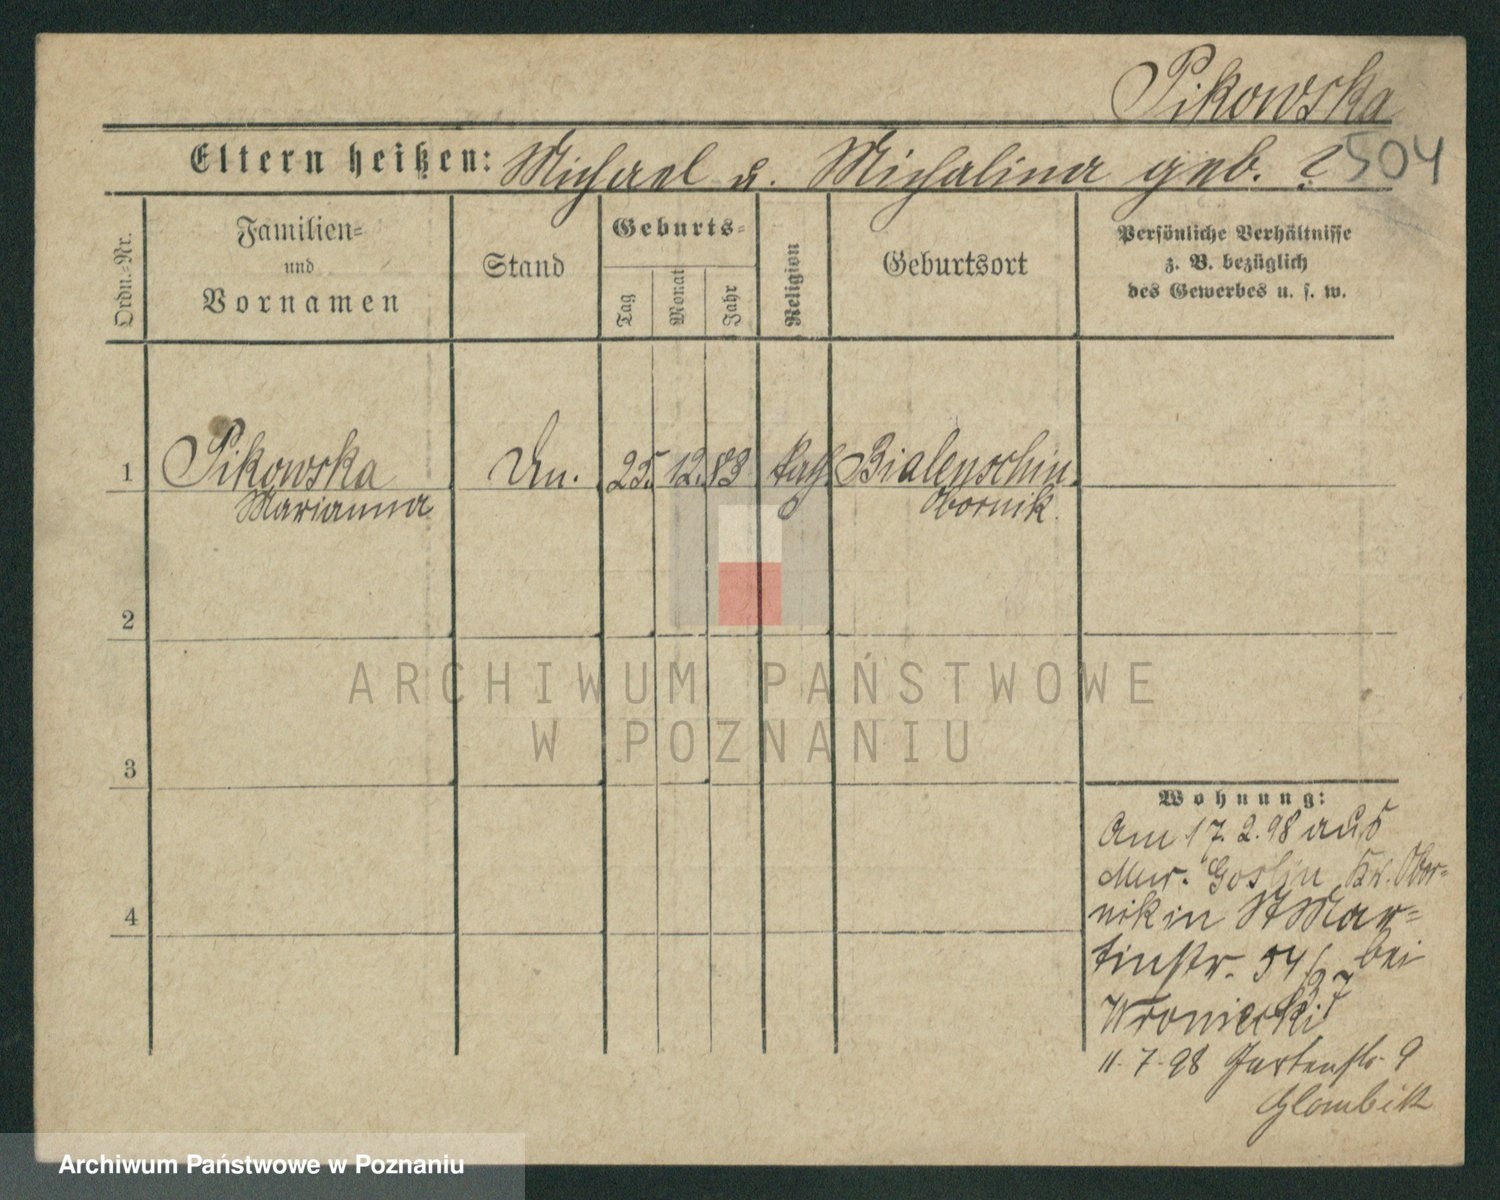 Pikowska
504
Eltern heißen: Michael u. Michalina geb. ?
Ordn.=Nr.
Familien=
und
Vornamen
Stand
Geburts=
Tag
Monat
Jahr
Religion
Geburtsort
Persönliche Verhältnisse
z. B. bezüglich
des Gewerbes u. s. w.
1 Pikowska 25. 12. 83 kath Bialenschin
Marianna Obornik.
2
ARCHIWUM PAŃSTWOWE
W POZNANIU
3
Wohnung:
Am 17. 2. 98 aus
Mur. Goslin Kr. Obor=
4
nik in St Mar=
tinstr. 54 bei
Wroniecki
11. 7. 98 Gartenstr. 9
Glombik
Archiwum Państwowe w Poznaniu